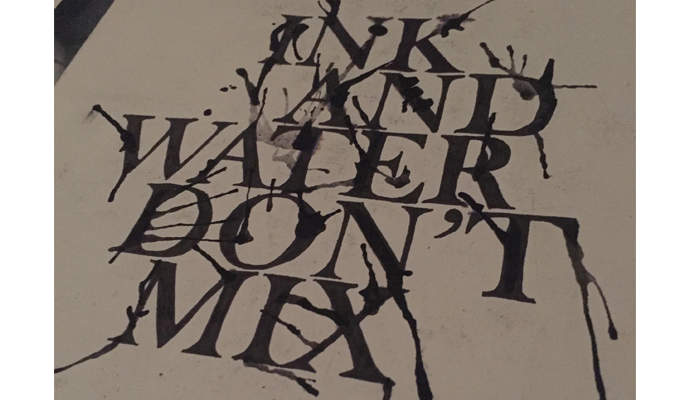 INK
AND
WATER
DON'T
MIX